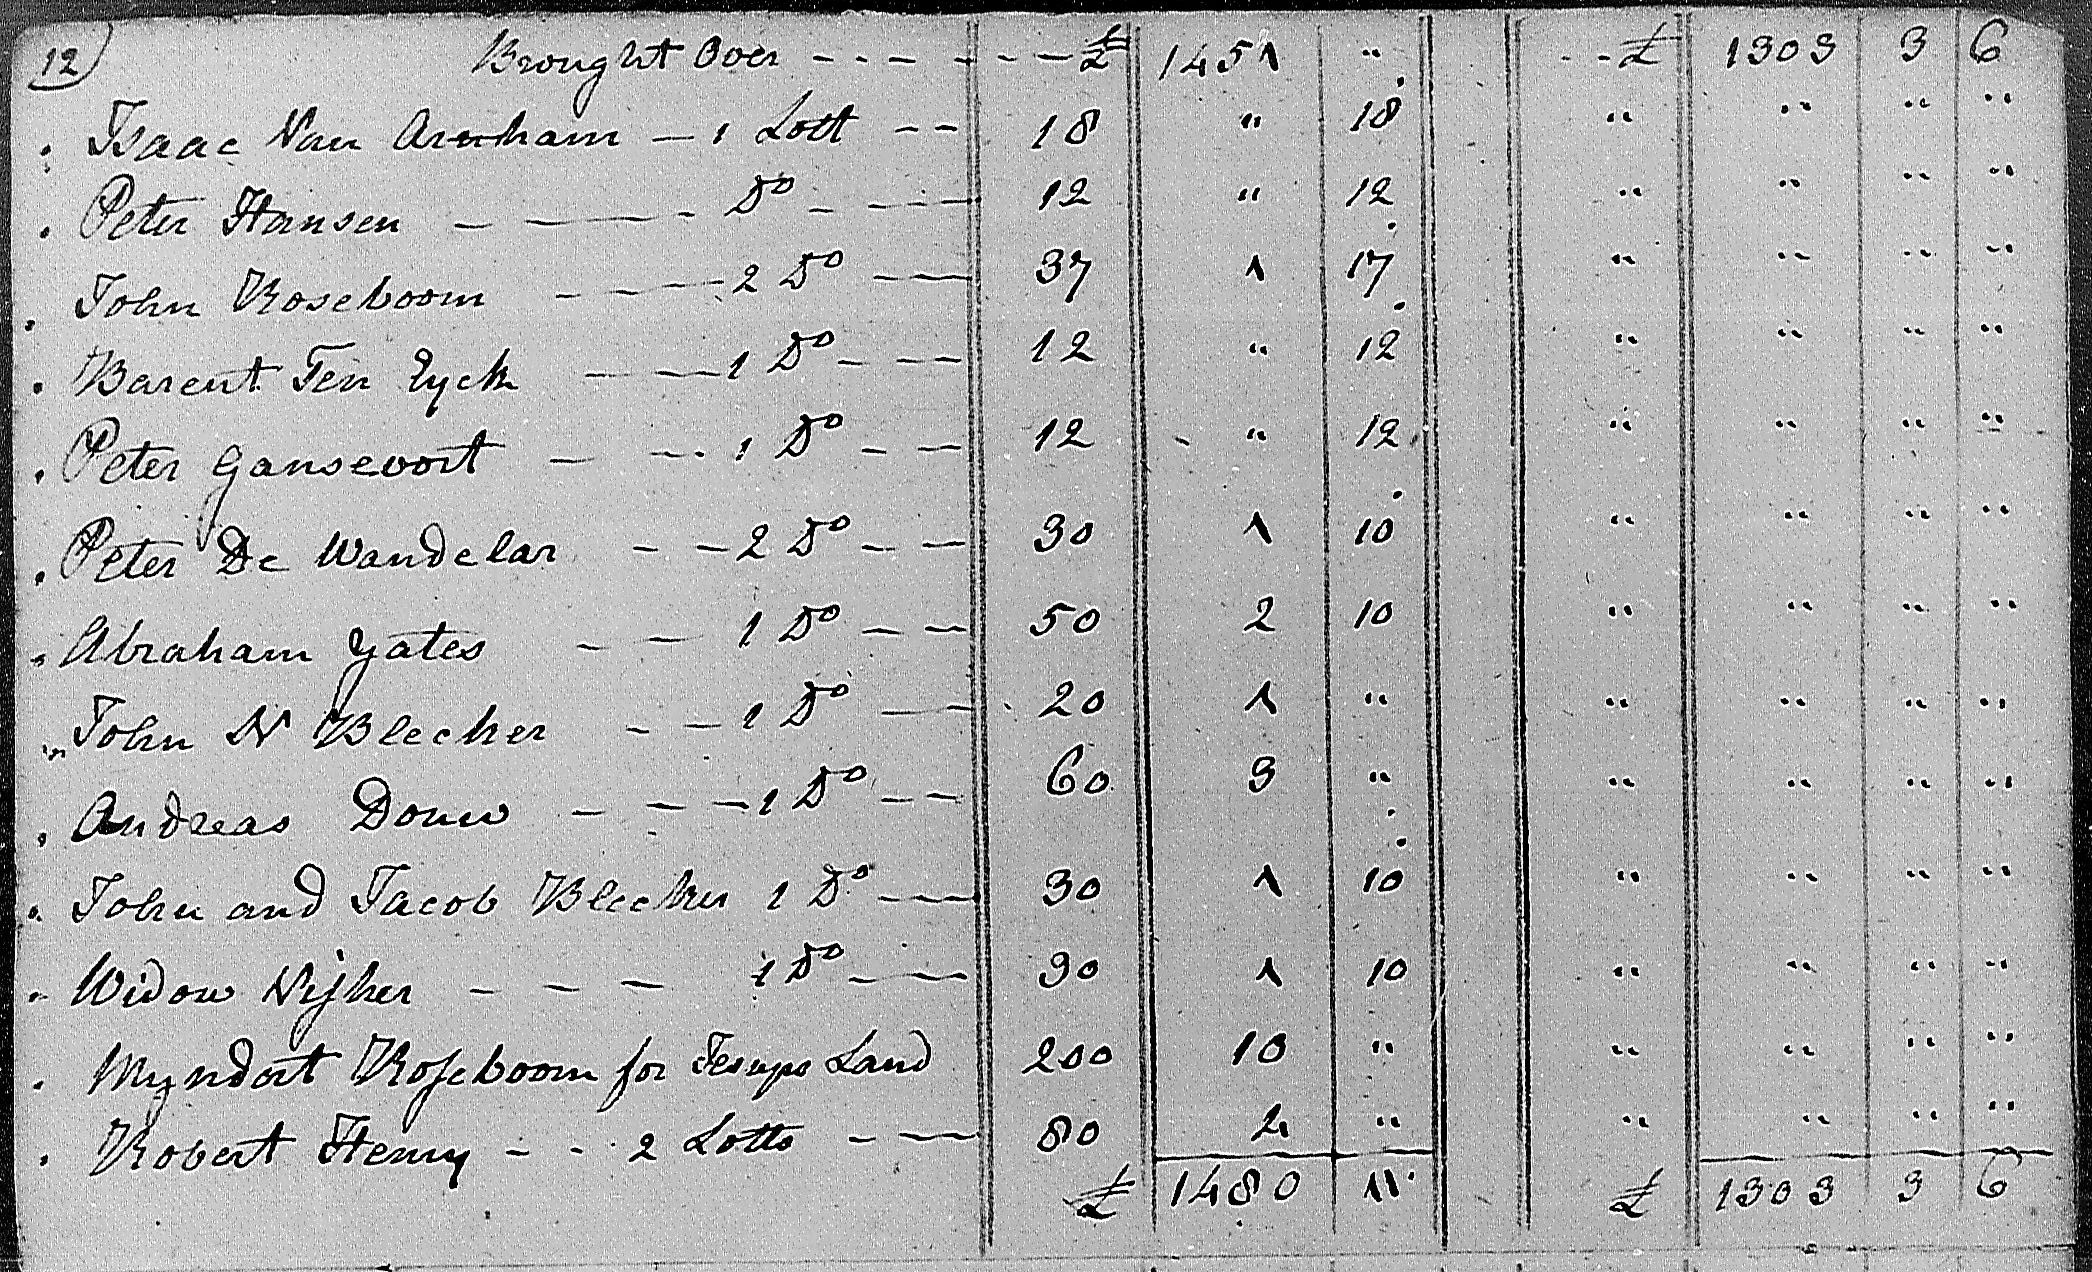 12 Brought Over - - - - - - £ 1451 " - - £ 1303 3 6
Isaac Van Arnham - 1 Lott - - 18 " 18 " " " "
Peter Hansen - - - - D° - - - 12 " 12 " " " "
John Roseboom - - - 2 D° - - 37 1 17 " " " "
Barent Ten Eyck - - 1 D° - - - 12 " 12 " " " "
Peter Gansevort - - - 1 D° - - 12 " 12 " " " "
Peter De Wandelar - - 2 D° - - 30 1 10 " " " "
Abraham Yates - - 1 D° - - 50 2 10 " " " "
John N Blecker - - 1 D° - - 20 1 " " " " "
Andreas Douw - - - 1 D° - - 60 3 " " " " "
John and Jacob Blecker 1 D° - - - 30 1 10 " " " "
Widow Visher - - - 1 D° - - 30 1 10 " " " "
Myndert Roseboom for Jesups Land 200 10 " " " " "
Robert Henry - - 2 Lotts - - 80 4 " " " " "
£ 1480 11 £ 1303 3 6